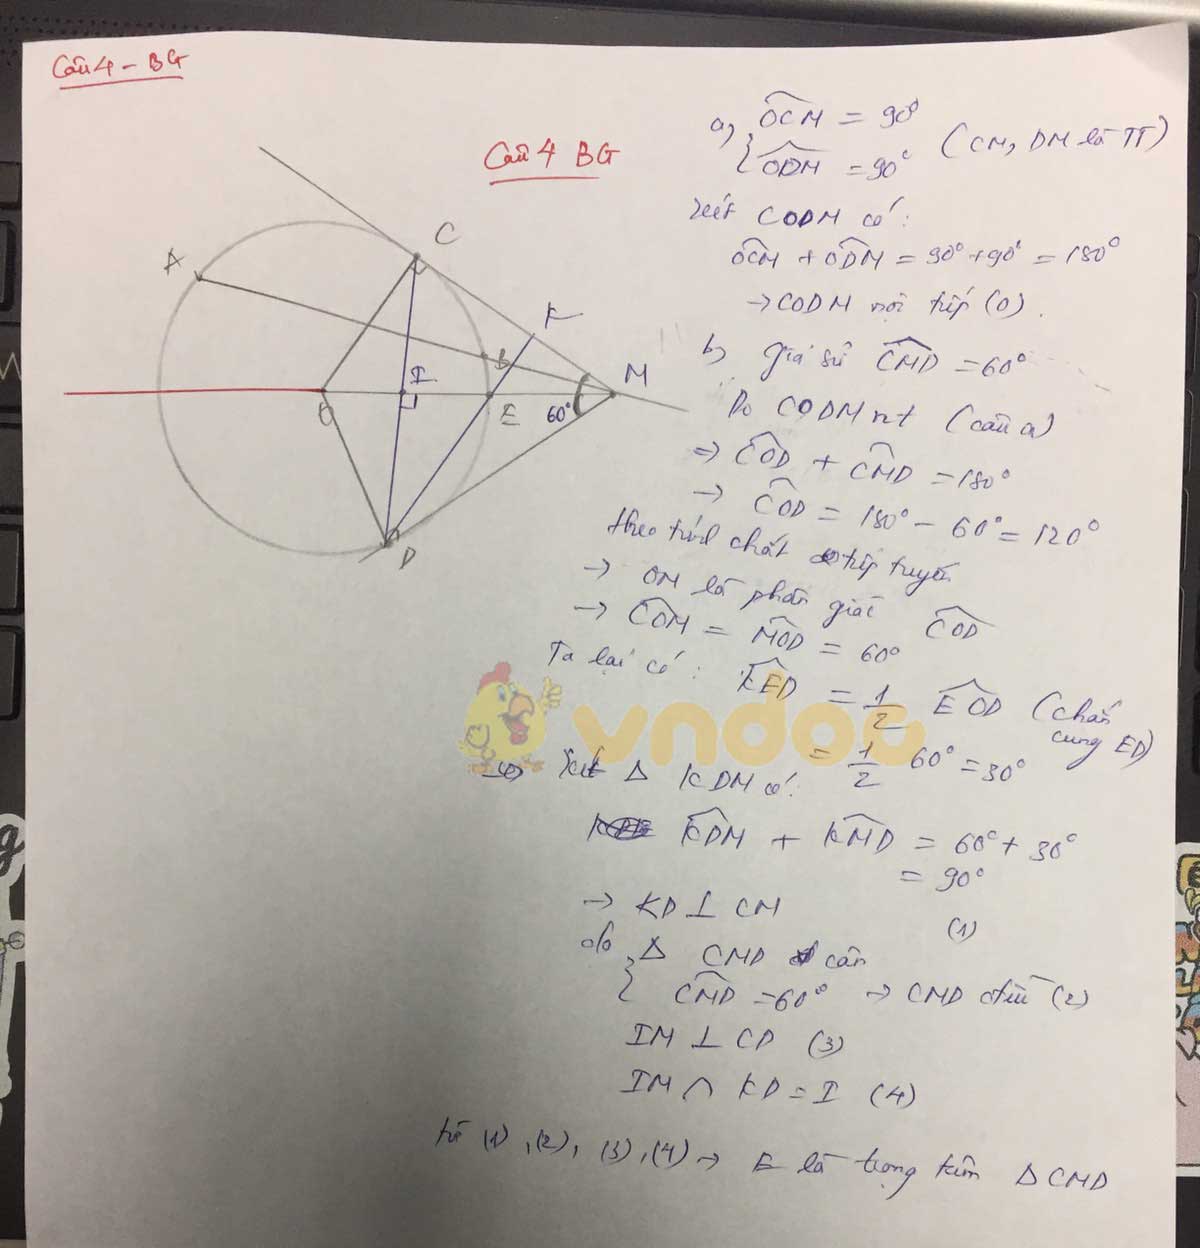 Câu 4 - BG
Câu 4 BG
A
C
K
B
M
I
O
E
60°
D
a, { OCM = 90°
ODM = 90° (CM, DM là TT)
Xét CODM có:
OCM + ODM = 90° + 90° = 180°
→ CODM nội tiếp (O).
b, Giả sử CMD = 60°
Do CODM nt (câu a)
⇒ COD + CMD = 180°
→ COD = 180° - 60° = 120°
theo tính chất tiếp tuyến
→ OM là phân giác COD
→ COM = MOD = 60°
Ta lại có: KED = 1/2 EOD (chắn cung ED)
= 1/2 60° = 30°
Xét Δ KDM có:
KDM + KMD = 60° + 30°
= 90°
→ KD ⊥ CM (1)
do { Δ CMD cân
CMD = 60° → CMD đều (2)
IM ⊥ CD (3)
IM ∩ KD = I (4)
từ (1), (2), (3), (4) → E là trọng tâm Δ CMD
vndoc